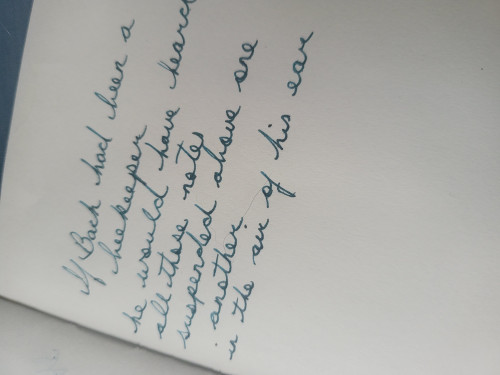 If Bach had been a
beekeeper
he would have heard
all those notes
suspended above one
another
in the air of his ear